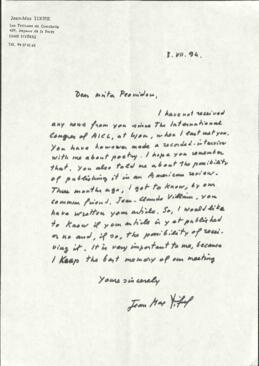 Jean-Max TIXIER
Les Terrasses de Costebelle
83400 HYÈRES
8. VII. 94.
Dear
I have not received
any news from you since The International
Congress of AICL, at Lyon, when I last met you.
You have however made a recorded-interview
with me about poetry. I hope you remember
that. You also told me about the possibility
of publishing it in an American review.
Three months ago, I got to know, by our
common friend. Jean-Claude Villain, you
have written your article. So, I would like
to know if your article is yet published
or no and, if so, the possibility of recei-
ving it. It is very important to me, because
I keep the best memory of our meeting
Yours sincerely
Jean Max